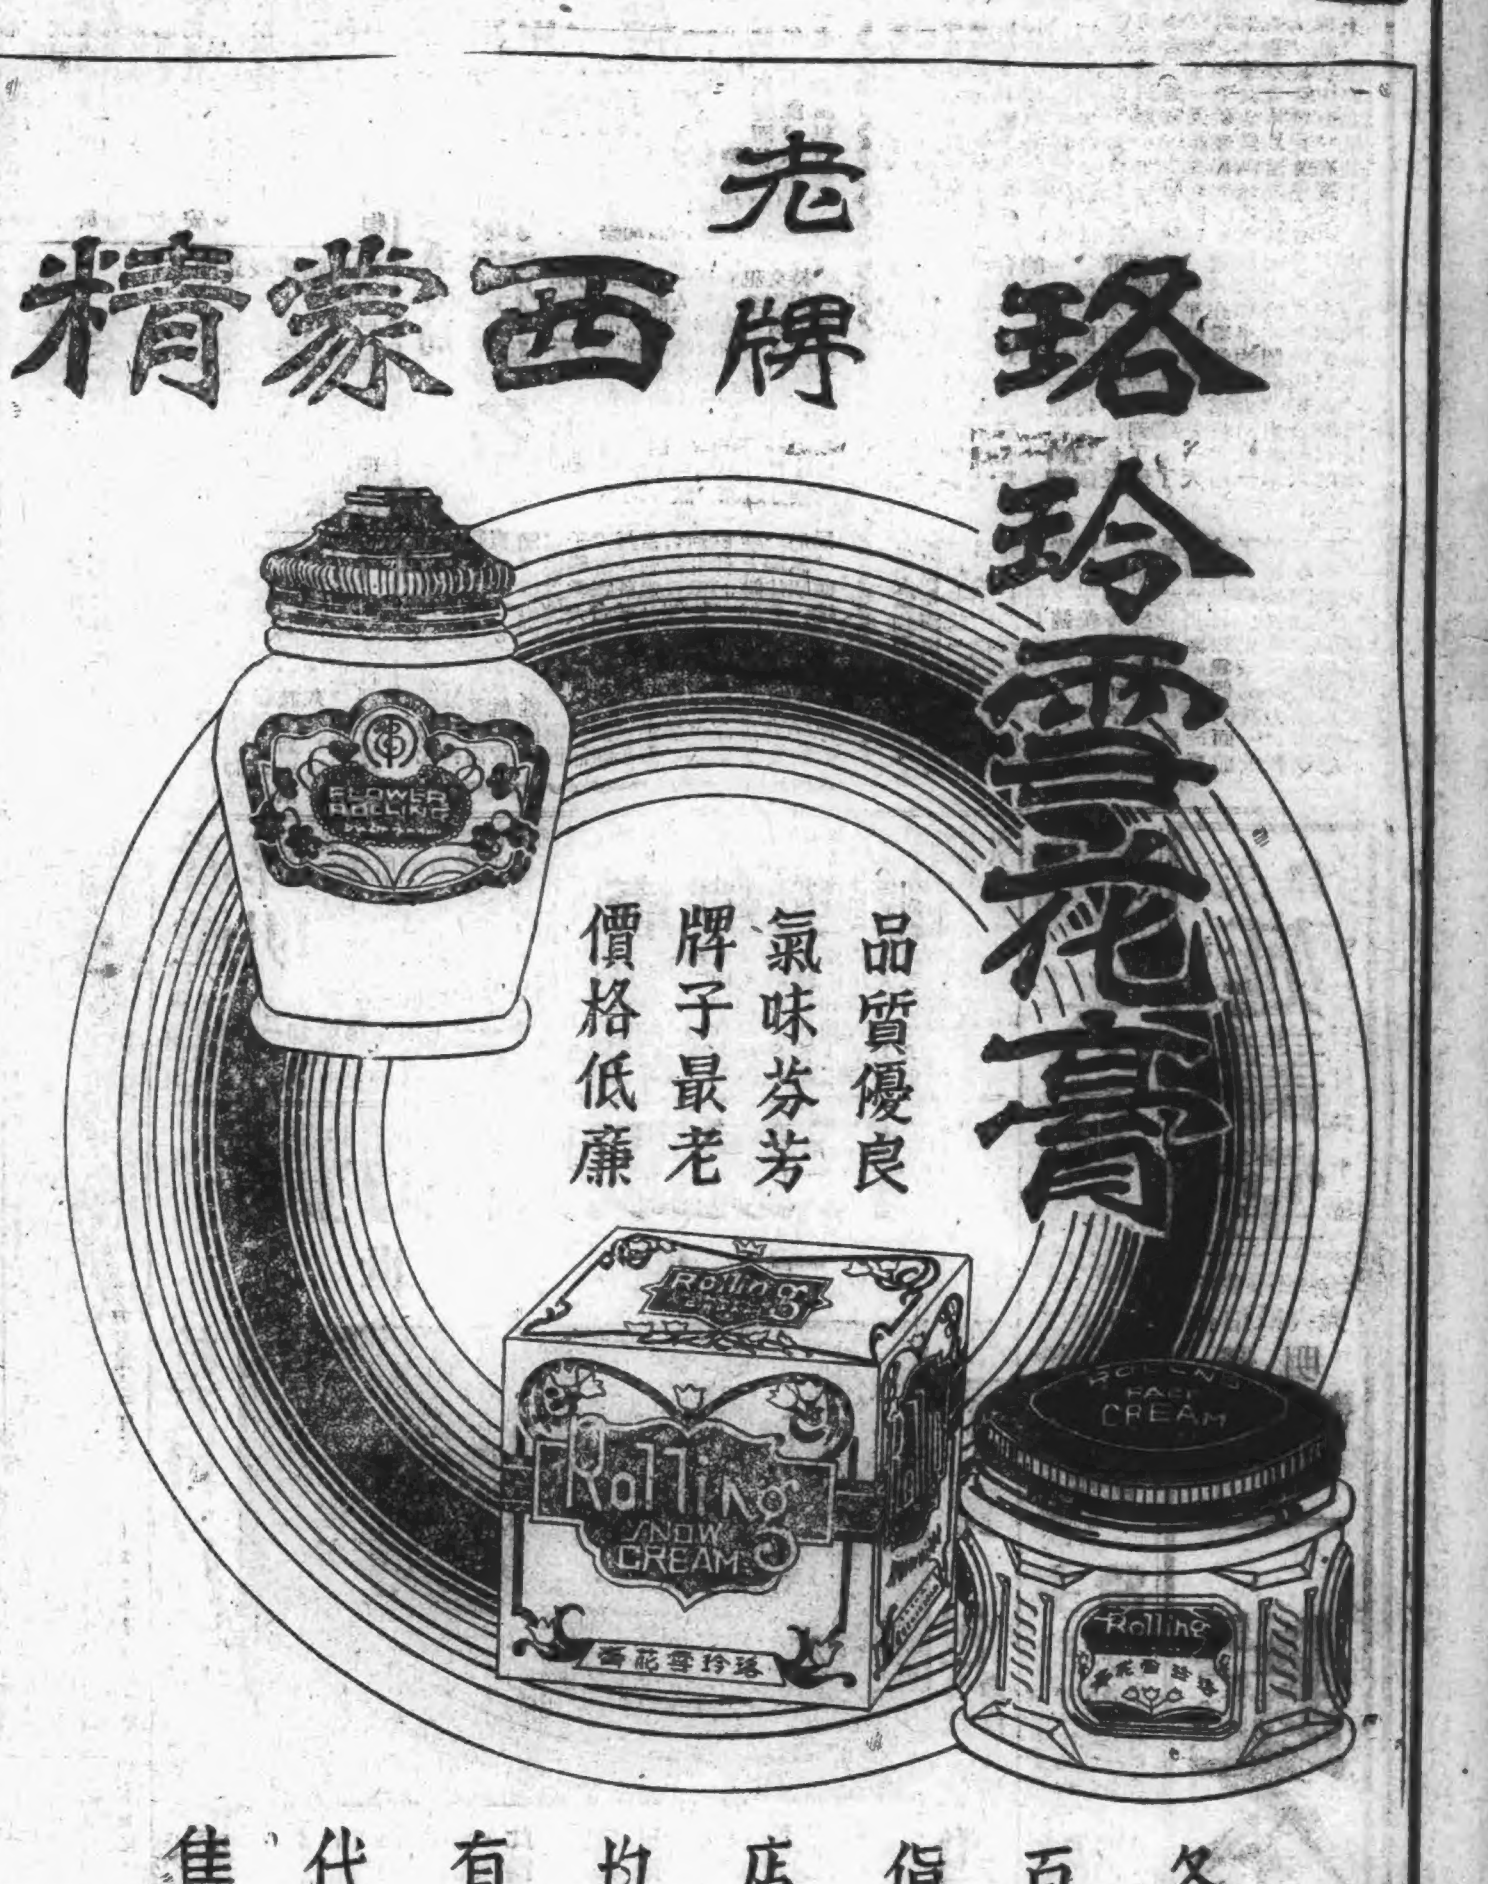 珞玲雪花膏
老牌
西蒙精
品質優良
氣味芬芳
牌子最老
價格低廉
FLOWER
ROLLING
Rolling
Rolling
SNOW
CREAM
珞玲雪花膏
FACE
CREAM
Rolling
珞玲雪花膏
各百貨店均有代售